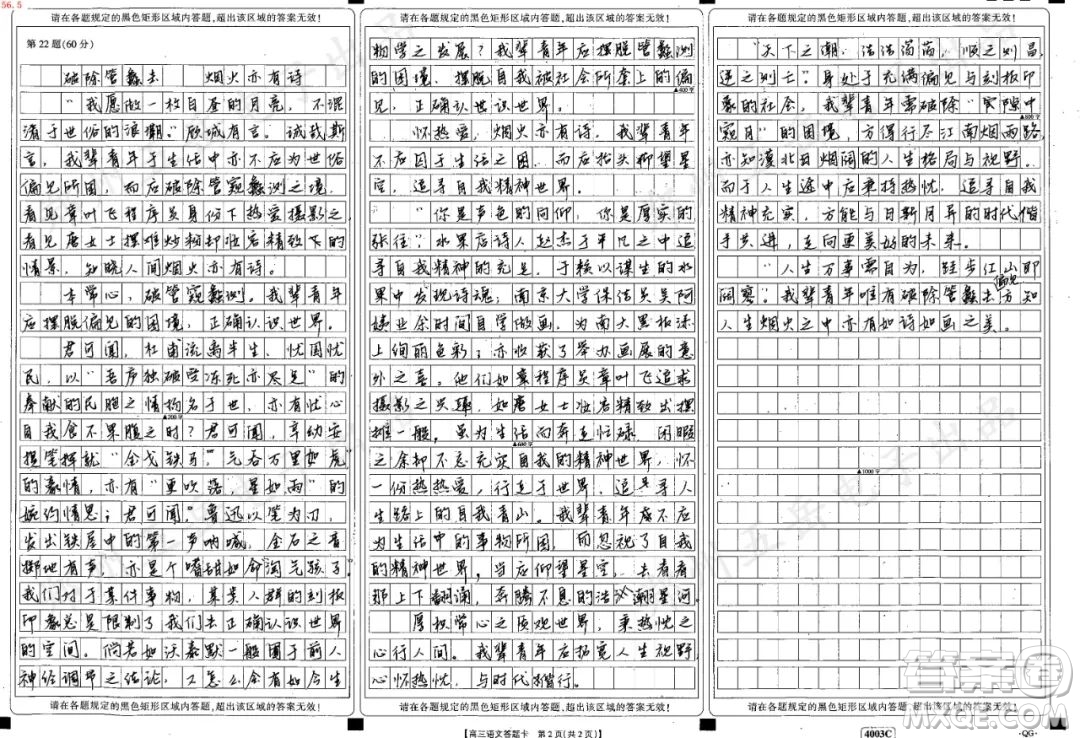 56.5
请在各题规定的黑色矩形区域内答题,超出该区域的答案无效!
第22题(60分)
破除管蠡去 烟火亦有诗
“我愿做一枚白昼的月亮,不混
淆于世俗的浪潮”顾城有言。诚哉斯
言,我辈青年于生活中亦不应为世俗
偏见所困,而应破除管窥蠡测之境,
看见章叶飞程序员身份下热爱摄影之,
看见唐女士摆摊炒粉却妆容精致下的
情景,知晓人间烟火亦有诗。
本常心,破管窥蠡测。我辈青年
应摆脱偏见的困境,正确认识世界。
君可闻,杜甫流离半生、忧国忧
民,以“吾庐独破受冻死亦足”的
奉献的民胞之情扬名于世,亦有忧心
自我食不果腹之时?君可闻,辛幼安
提笔挥就“金戈铁马,气吞万里如虎”
的豪情,亦有“更吹落,星如雨”的
婉约情思;君可闻,鲁迅以笔为刀,
发出铁屋中的第一声呐喊,金石之音
掷地有声,亦是个嗜甜如命淘气孩子。
我们对于某件事物,某类人群的刻板
印象总是限制了我们去正确认识世界
的空间。倘若如沃泰默一般囿于前人
神经调节之结论,又怎么会有如今生
▲200字
请在各题规定的黑色矩形区域内答题,超出该区域的答案无效!
请在各题规定的黑色矩形区域内答题,超出该区域的答案无效!
物学之发展?我辈青年应摆脱管蠡测
的困境,摆脱自我被社会所套上的偏
见,正确认识世界。
▲400字
怀热爱,烟火亦有诗。我辈青年
不应囿于生活之困,而应抬头仰望星
空,追寻自我精神世界。
“你是声色的向仰,你是厚实的
张往”水果店诗人赵杰于平凡之中追
寻自我精神的充足,于赖以谋生的水
果中发现诗魂;南京大学保洁员吴阿
姨业余时间自学做画,为南大黑板添
上绚丽色彩,亦收获了举办画展的意
外之喜。他们如章程序员章叶飞追求
摄影之美,如唐女士妆容精致出摆
摊一般,虽为生活而奔走忙碌,闲暇
▲600字
之余却不忘充实自我的精神世界,怀
一份热爱,行走于世界,追寻人
生路上的自我青山。我辈青年应不应
为生活中的事物所困,而忽视了自我
的精神世界,当应仰望星空,去看看
那上下翻涌,奔腾不息的浩瀚星河。
厚植常心之质观世界,秉热忱之
心行人间。我辈青年应拓宽人生视野,
心怀热忱,与时代偕行。
请在各题规定的黑色矩形区域内答题,超出该区域的答案无效!
【高三语文答题卡 第2页(共2页)】
请在各题规定的黑色矩形区域内答题,超出该区域的答案无效!
“天下之潮,浩浩荡荡,顺之则昌,
逆之则亡”身处于充满偏见与刻板印
象的社会,我辈青年需破除“宾隙中
▲800字
窥月”的困境,方得行尽江南烟雨路,
亦知漠北日烟阔的人生格局与视野。
而于人生途中应秉持热忱,追寻自我
精神充实,方能与日新月异的时代偕
手共进,走向更美好的未来。
“人生万事需自为,跬步江山即
寥廓”我辈青年唯有破除管蠡去偏见方知
人生烟火之中亦有如诗如画之美。
▲1000字
请在各题规定的黑色矩形区域内答题,超出该区域的答案无效!
4003C
·QG·
答案圈